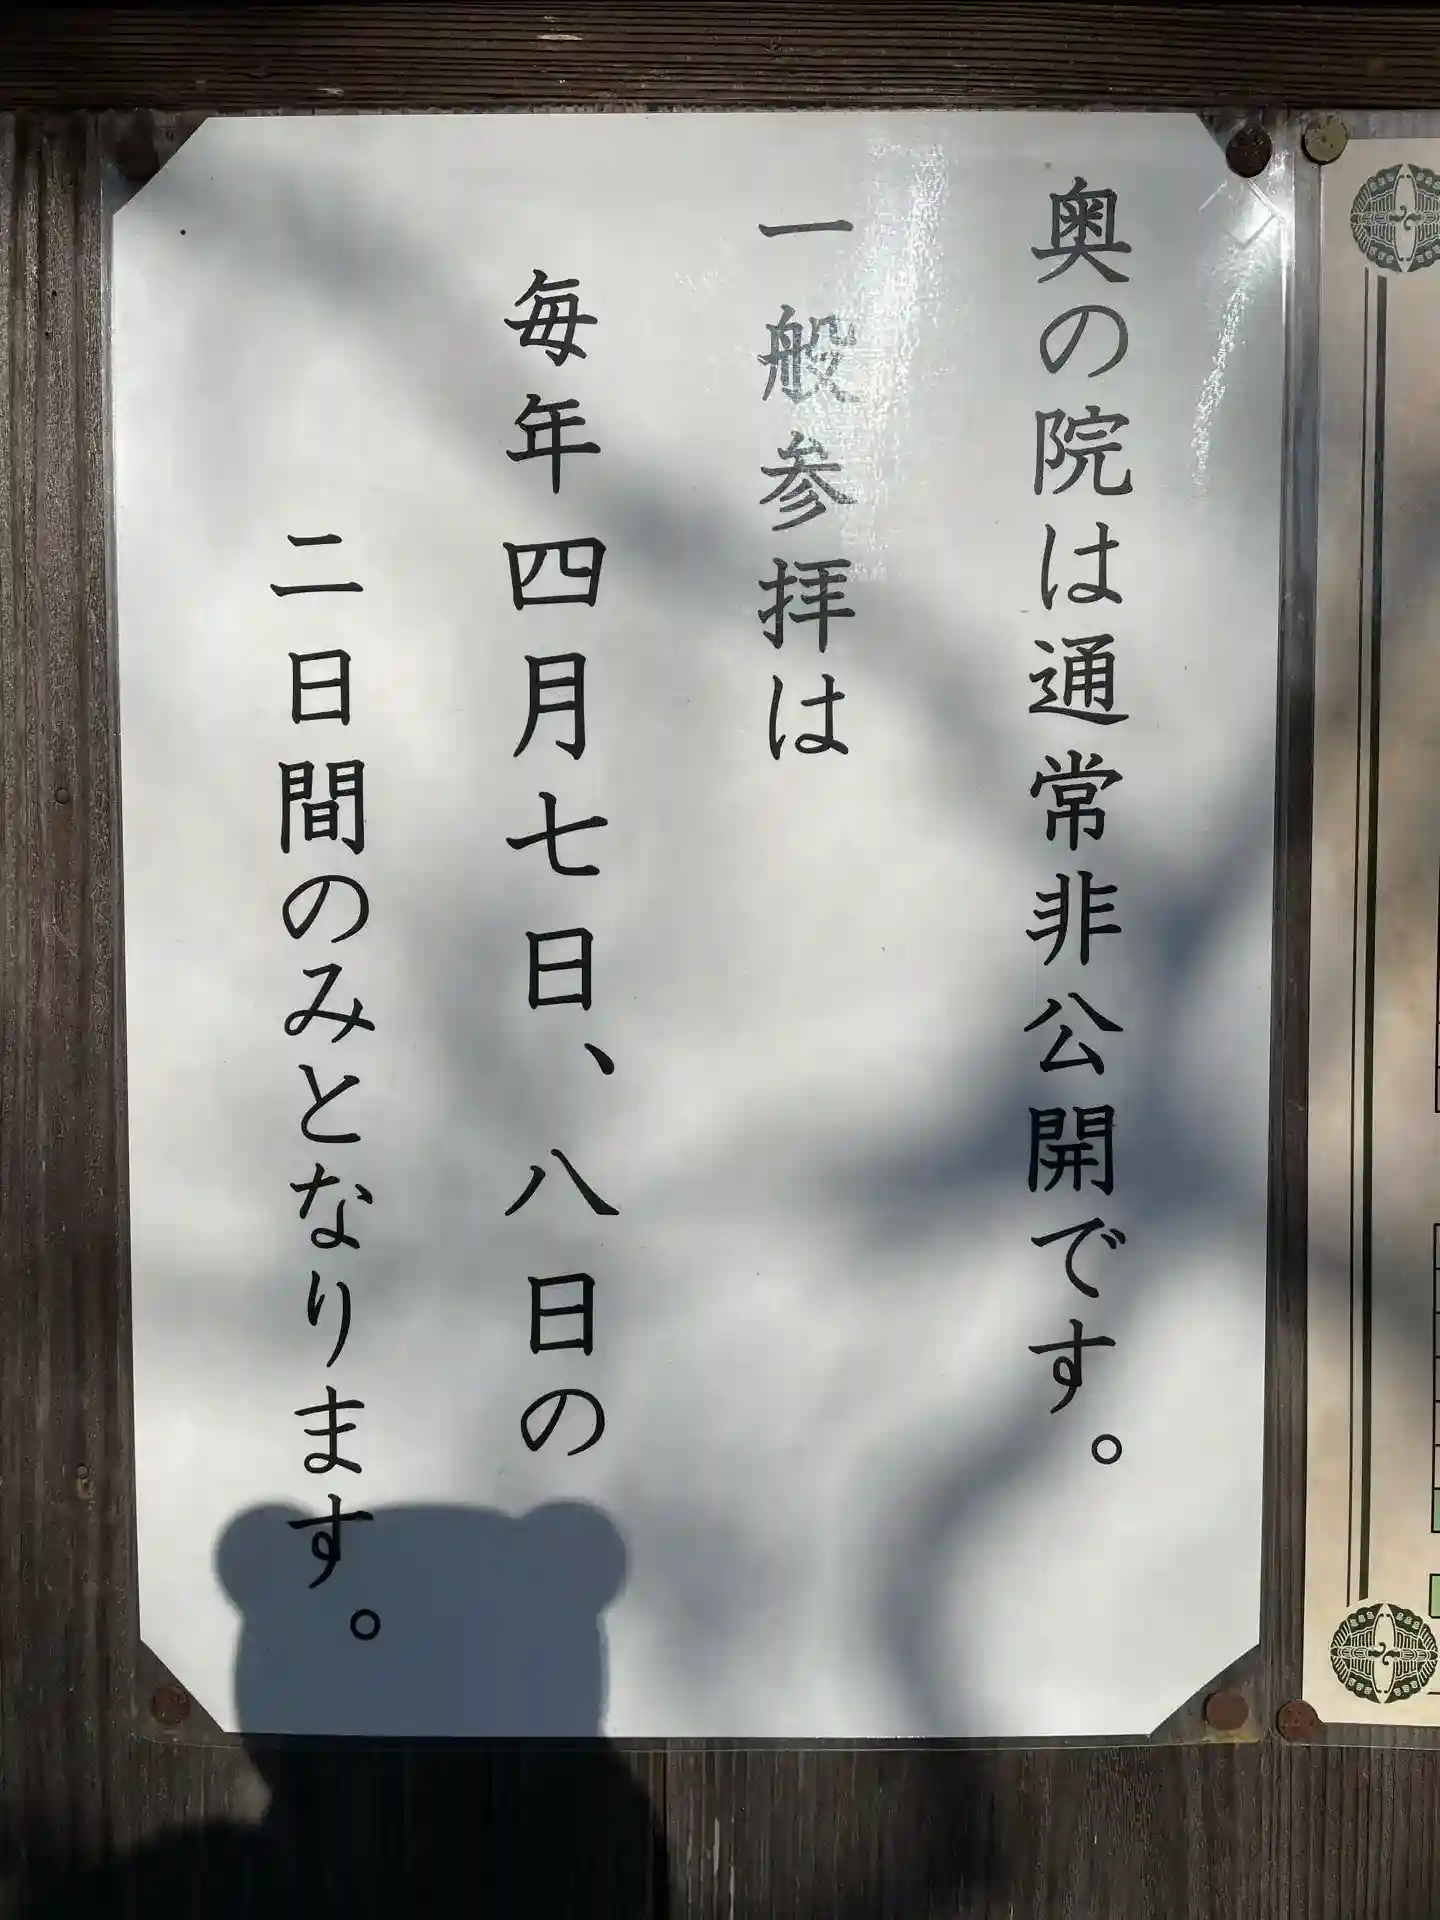 奥の院は通常非公開です。
一般参拝は
毎年四月七日、八日の
二日間のみとなります。